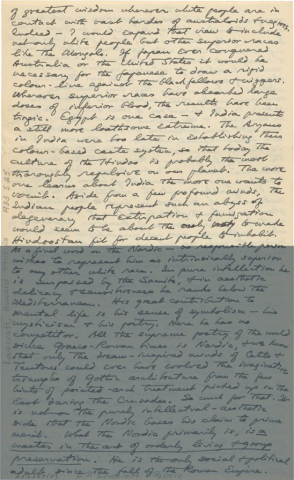 of greatest wisdom wherever white people are in
contact with vast hordes of australoids & negroes.
Indeed — I would expand that view & include
not only white people but other superior races
like the Mongols. If Japan ever conquered
Australia or the United States it would be
necessary for the Japanese to draw a rigid
colour-line against the blackfellows & niggers.
Wherever superior races have absorbed large
doses of inferior blood, the results have been
tragic. Egypt is one case — & India presents
a still more loathsome extreme. The Aryans
in India were too late in establishing their
colour-based caste system, so that today the
culture of the Hindoo is probably the most
thoroughly repulsive on our planet. The more
one learns about India the more one wants to
vomit. Aside from a few profound minds, the
Indian people represent such an abyss of
degeneracy that extirpation & fumigation
would seem to be about the only way to make
Hindoostan fit for decent people to inhabit.
As a final word on the Nordic — no responsible person
wishes to represent him as intrinsically superior
to any other white race. In pure intellection he
is surpassed by the Semite, & in aesthetic
delicacy & sensitiveness he ranks below the
Mediterranean. His great contribution to
mental life is his sense of symbolism — his
mysticism & his poetry. Here he has no
competitor. All the supreme poetry of the world
since Graeco-Roman times is Nordic, & we know
that only the dream-inspired minds of Celts &
Teutons could ever have evolved the imaginative
triumphs of Gothic architecture from the few
hints of pointed-arch treatment picked up in the
East during the Crusades. So much for that. It
is not on the purely intellectual-aesthetic
side that the Nordic bases his claim to prime
merit. What the Nordic primarily is, is a
master in the art of orderly living & group
preservation. He is the only social & political
adult since the fall of the Roman Empire.